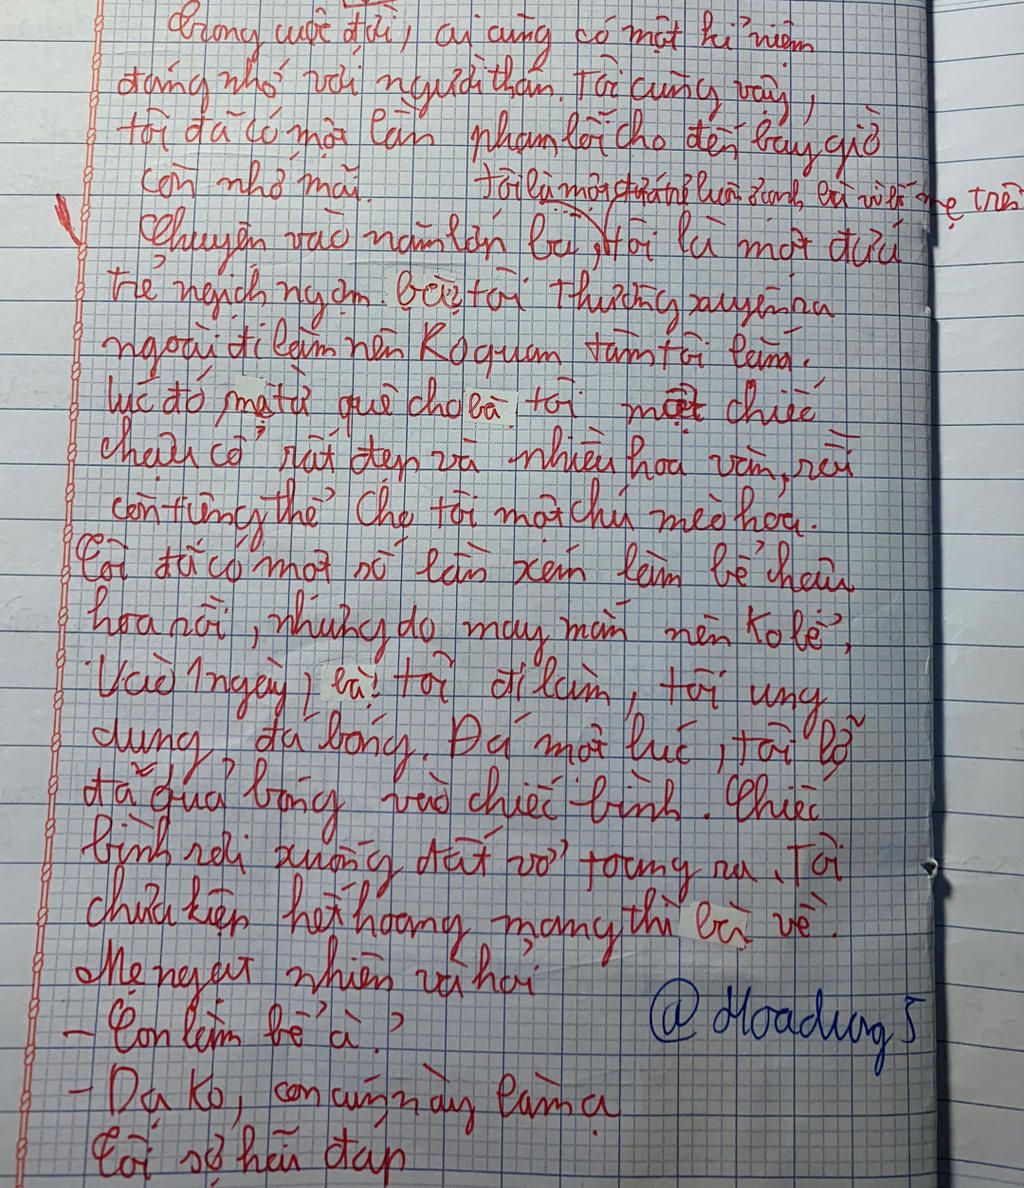 Trong cuộc đời, ai cũng có một kỉ niệm
đáng nhớ với người thân. Tôi cũng vậy,
tôi đã có một lần phạm lỗi cho đến bây giờ
còn nhớ mãi.
tôi là một đứa trẻ luôn
mẹ trên
Chuyện vào năm lớp ba, tôi là một đứa
trẻ nghịch ngợm. bà tôi thường xuyên ra
ngoài đi làm nên Ko quan tâm tôi lắm.
lúc đó, mẹ từ quê cho bà tôi một chiếc
chậu cổ rất đẹp và nhiều hoa văn, rồi
còn từng thể cho tôi một chú mèo hoa.
Tôi đã có một số lần xém làm bể chậu
hoa rồi, nhưng do may mắn nên Ko bể,
Vào 1 ngày, bà tôi đi làm, tôi ung
dung đá bóng. Đá một lúc, tôi lỡ
đá quả bóng vào chiếc bình. Chiếc
bình rơi xuống đất vỡ toang ra. Tôi
chưa kịp hết hoang mang thì bà về.
Mẹ ngạt nhiên và hỏi
- Con làm bể à?
- Dạ Ko, con cún này làm ạ
Tôi sợ hãi đáp
@Hoadung5